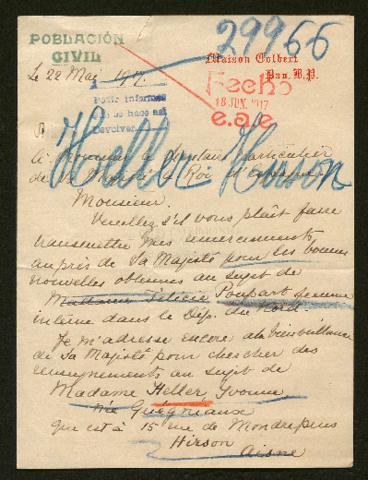 POBLACIÓN
CIVIL
29966
Maison Colbert
Pau. B.P.
Le 22 Mai 1917.
Fecho
18 JUN. 1917
Pedir informes
Devolver
Heller Hirson
A Monsieur le Secrétaire Particulier
de Sa Majesté le Roi d'Espagne
Monsieur.
Veuillez s'il vous plaît faire
transmettre mes remerciments
auprès de Sa Majesté pour les bonnes
nouvelles obtenues au sujet de
Madame Félicie Poupart femme
internée dans le Dép. du Nord.
Je m'adresse encore a la bienveillance
de Sa Majesté pour chercher des
renseignements au sujet de
Madame Heller Yvonne
née
que est à 15 rue de Mondrepuis
Hirson
Aisne